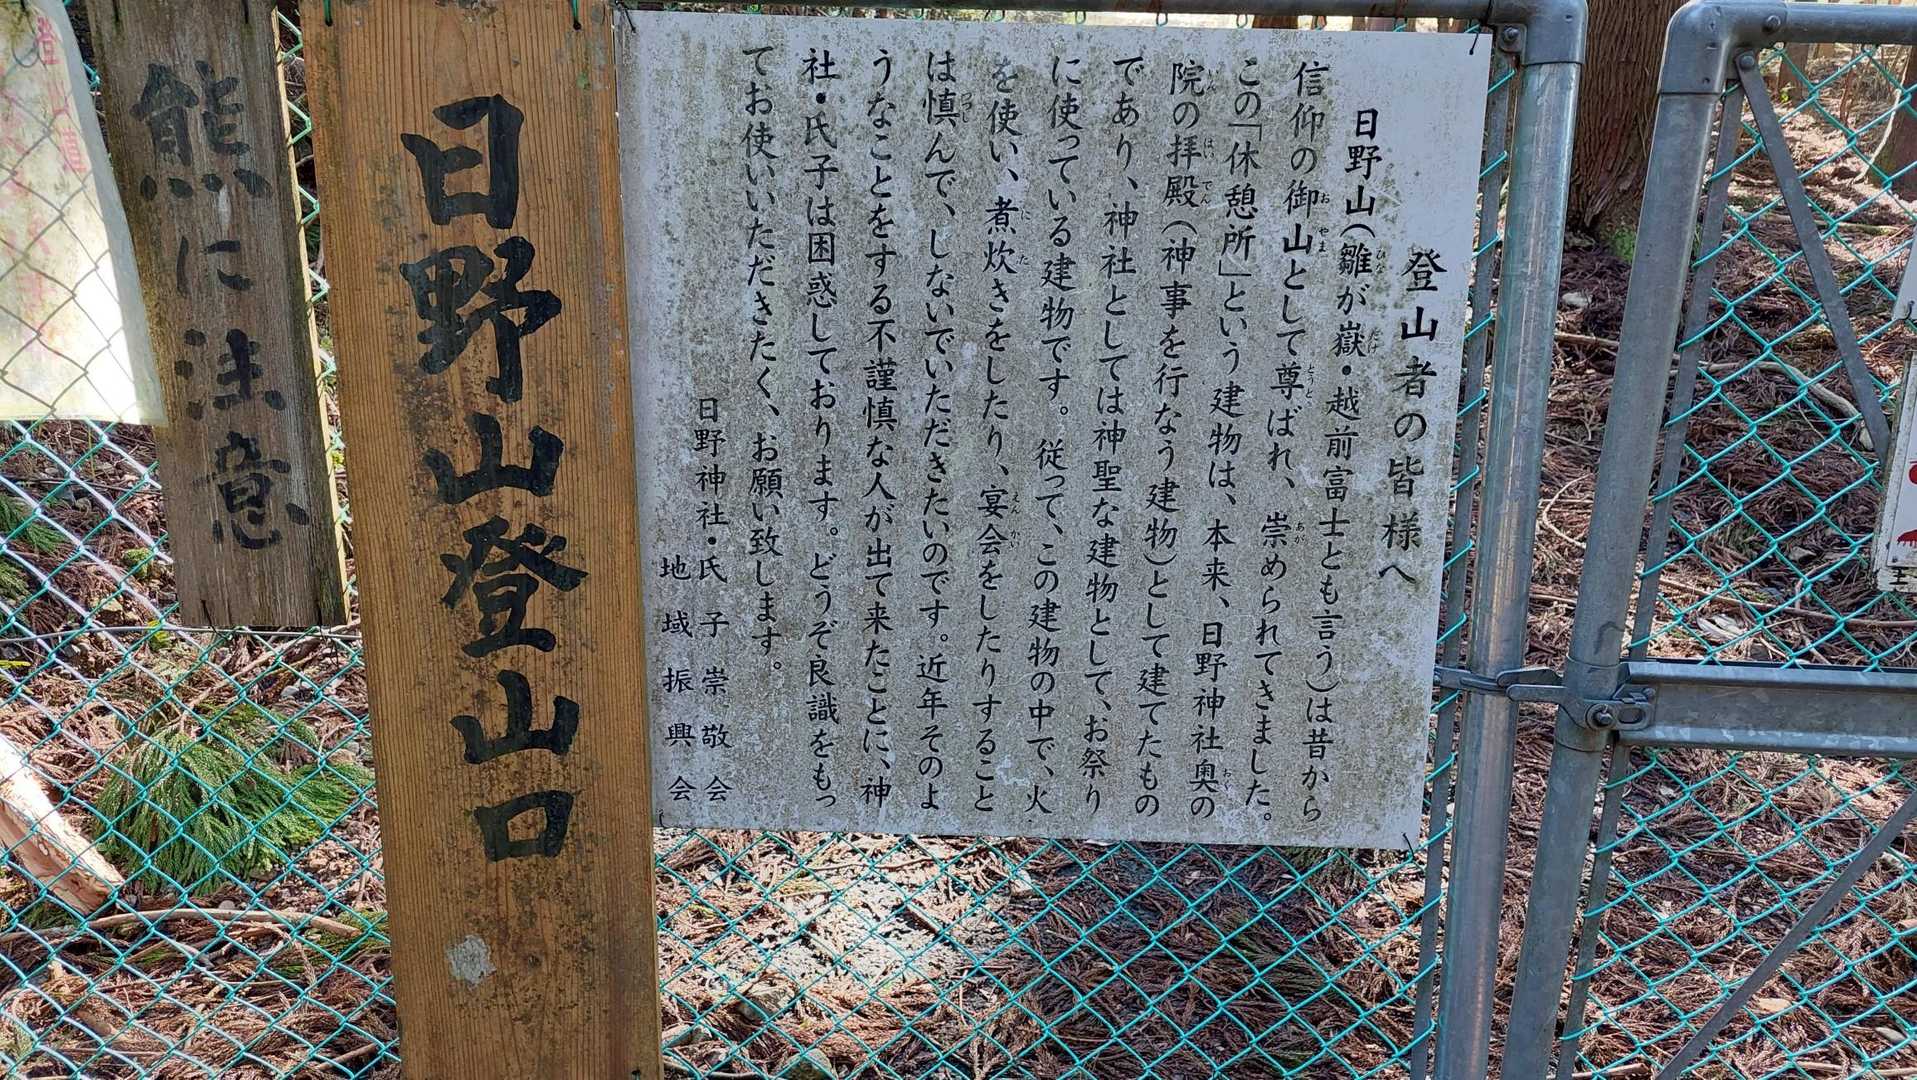 登山者の皆様へ
日野山(雛が嶽・越前富士とも言う)は昔から
信仰の御山として尊ばれ、崇められてきました。
この「休憩所」という建物は、本来、日野神社奥の
院の拝殿(神事を行なう建物)として建てたもの
であり、神社としては神聖な建物として、お祭り
に使っている建物です。従って、この建物の中で、火
を使い、煮炊きをしたり、宴会をしたりすること
は慎んで、しないでいただきたいのです。近年そのよ
うなことをする不謹慎な人が出て来たことに、神
社・氏子は困惑しております。どうぞ良識をもっ
てお使いいただきたく、お願い致します。
日野神社・氏子崇敬会
地域振興会
日野山登山口
熊に注意